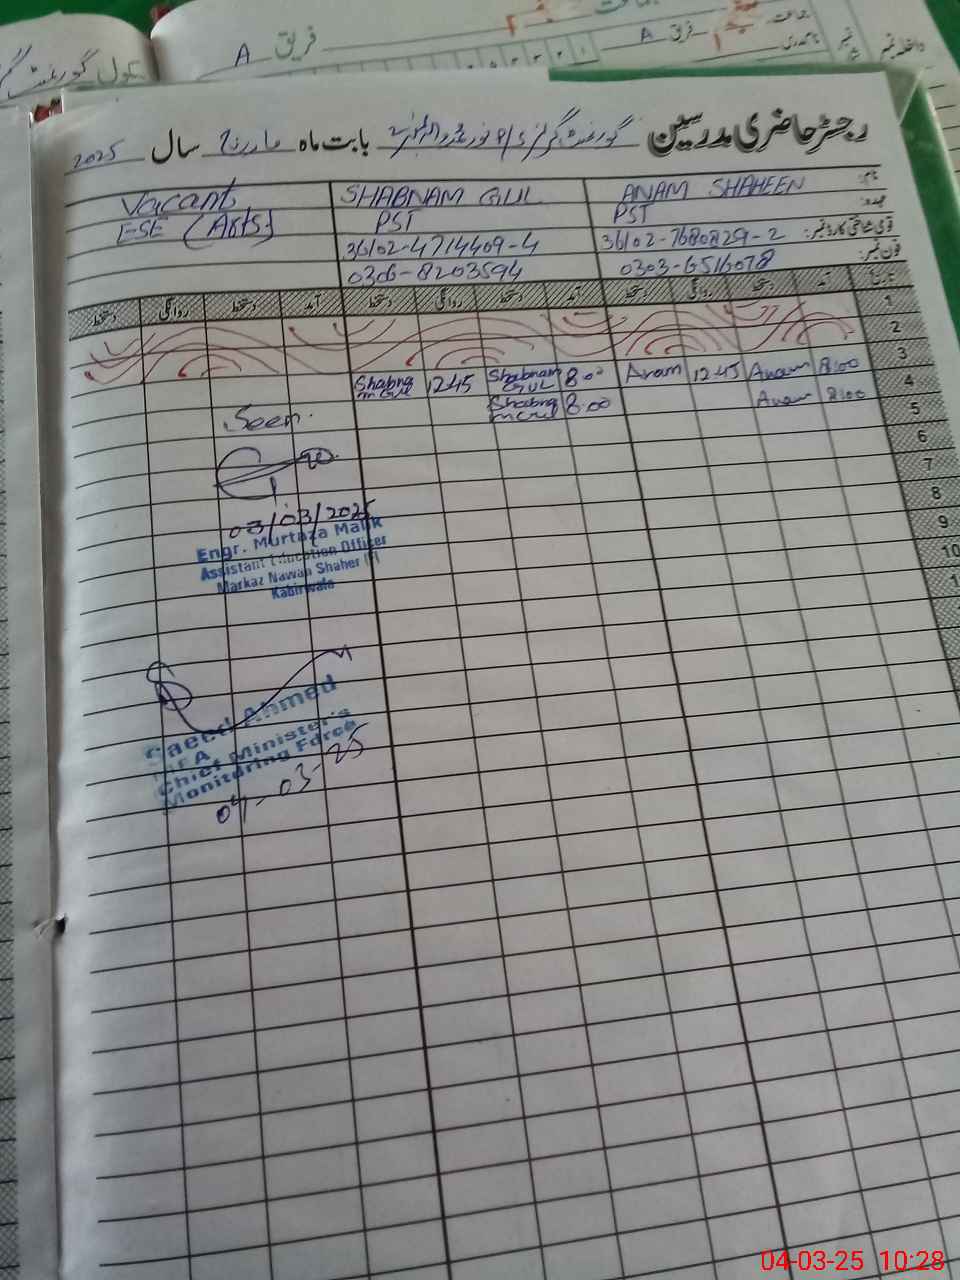 فریق A
سکول گورنمنٹ
فریق A
داخلہ نمبر
رجسٹر حاضری مدرسین گورنمنٹ گرلز بابت ماہ مارچ سال 2025
نام:
عہدہ:
قومی شناختی کارڈ نمبر:
فون نمبر:
ANAM SHAHEEN
PST
36102-7680829-2
0303-6516078
SHABNAM GUL
PST
36102-4714409-4
0306-8203594
Vacant
ESE (Arts)
تاریخ آمد دستخط روانگی دستخط آمد دستخط روانگی دستخط آمد دستخط روانگی دستخط
1
2
3
4 8:00 Anam 12:45 Anam 8:00 Shabnam GUL 12:45 Shabnam Gul
5 8:00 Anam 8:00 Shabnam Gul
6
7
8
9
10
Seen.
03/03/2025
Engr. Murtaza Malik
Assistant Education Officer
Markaz Nawan Shaher
Kabirwala
Saeed Ahmed
MEA
Chief Minister's
Monitoring Force
04-03-25
04-03-25 10:28